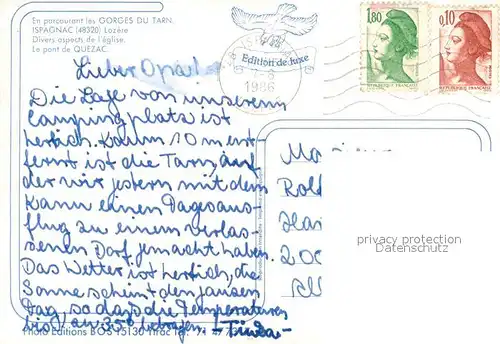 En parcourant les GORGES DU TARN.
ISPAGNAC (48320) Lozère
Divers aspects de l'église.
Le pont de QUEZAC.
Edition de luxe
1986
1,80
0,10
REPUBLIQUE FRANÇAISE
REPUBLIQUE FRANÇAISE
Lieber Opa!
Die Lage von unserem
Campingplatz ist
herlich. Kaum 10 m ent
fernt ist die Tarn, auf
der wir gestern mit dem
Kanu einen Tagesaus-
flug zu einem verlas-
senen Dorf gemacht haben.
Das Wetter ist herlich, die
Sonne scheint den ganzen
Tag, so daß die Temperaturen
bis an 35° betragen!
privacy protection
DALLMANN
Photo Editions BOS 15130 Ytrac Tel. 71 47